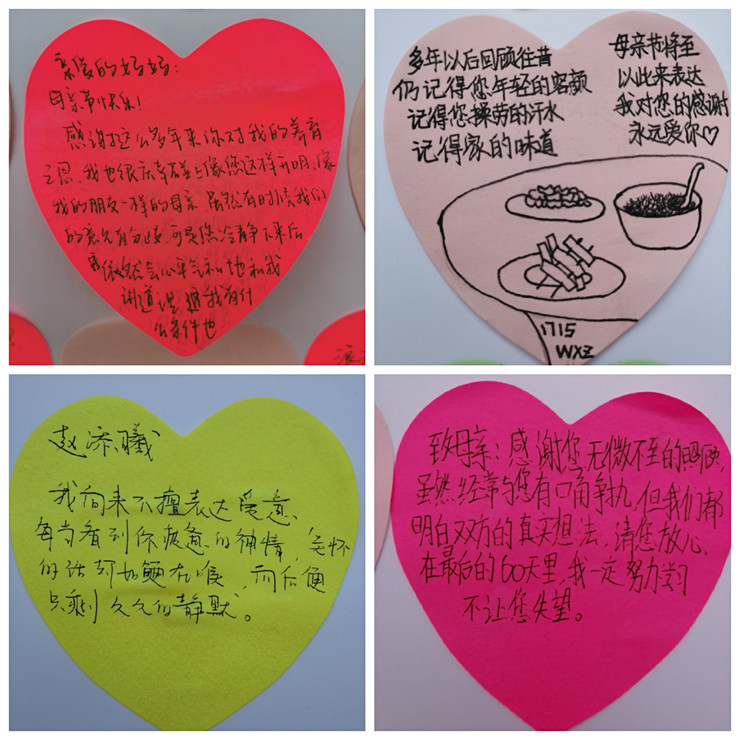 亲爱的妈妈:
母亲节快乐!
感谢这么多年来你对我的养育
之恩,我也很庆幸碰上像您这样开明、像
我的朋友一样的母亲 虽然有时候我们
的意见有分歧,可是您冷静下来后
依然会心平气和地和我
讲道理
多年以后回顾往昔
仍记得您年轻的容颜
记得您操劳的汗水
记得家的味道
母亲节将至
以此来表达
我对您的感谢
永远爱你♡
1715
WXZ
赵添曦
我向来不擅表达爱意、
每当看到你疲惫的神情,关怀
的话却如鲠在喉,而后便
只剩久久的静默。
致母亲:感谢您无微不至的照顾,
虽然经常与您有口角争执,但我们都
明白双方的真实想法,请您放心,
在最后的60天里,我一定努力学习
不让您失望。